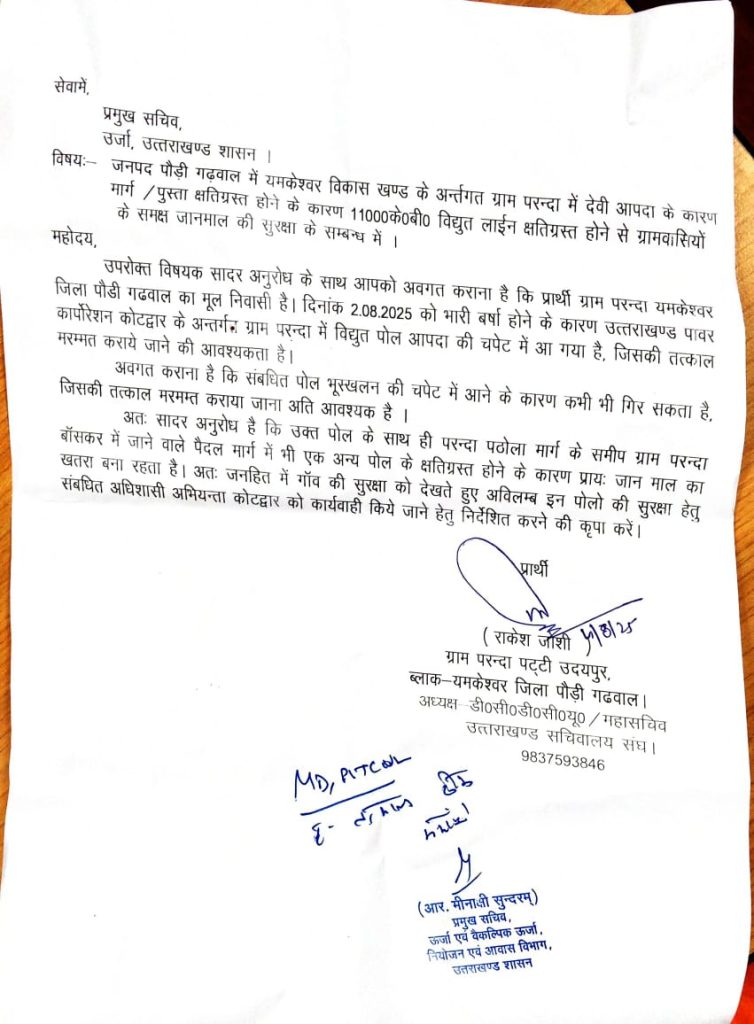 सेवामें,
प्रमुख सचिव,
उर्जा, उत्तराखण्ड शासन ।
विषयः– जनपद पौड़ी गढ़वाल में यमकेश्वर विकास खण्ड के अर्न्तगत ग्राम परन्दा में देवी आपदा के कारण
मार्ग /पुस्ता क्षतिग्रस्त होने के कारण 11000के0बी0 विद्युत लाईन क्षतिग्रस्त होने से ग्रामवासियों
के समक्ष जानमाल की सुरक्षा के सम्बन्ध में ।
महोदय,
उपरोक्त विषयक सादर अनुरोध के साथ आपको अवगत कराना है कि प्रार्थी ग्राम परन्दा यमकेश्वर
जिला पौडी गढवाल का मूल निवासी है। दिनांक 2.08.2025 को भारी बर्षा होने के कारण उत्तराखण्ड पावर
कार्पोरेशन कोटद्वार के अन्तर्गन ग्राम परन्दा में विद्युत पोल आपदा की चपेट में आ गया है, जिसकी तत्काल
मरम्मत कराये जाने की आवश्यकता है।
अवगत कराना है कि संबधित पोल भूस्खलन की चपेट में आने के कारण कभी भी गिर सकता है,
जिसकी तत्काल मरमम्त कराया जाना अति आवश्यक है ।
अतः सादर अनुरोध है कि उक्त पोल के साथ ही परन्दा पठोला मार्ग के समीप ग्राम परन्दा
बॉसकर में जाने वाले पैदल मार्ग में भी एक अन्य पोल के क्षतिग्रस्त होने के कारण प्रायः जान माल का
खतरा बना रहता है। अतः जनहित में गॉव की सुरक्षा को देखते हुए अविलम्ब इन पोलो की सुरक्षा हेतु
संबधित अधिशासी अभियन्ता कोटद्वार को कार्यवाही किये जाने हेतु निर्देशित करने की कृपा करें।
प्रार्थी
( राकेश जोशी )
ग्राम परन्दा पट्टी उदयपुर,
ब्लाक–यमकेश्वर जिला पौडी गढवाल।
अध्यक्ष डी0सी0डी0सी0यू0/महासचिव
उत्तराखण्ड सचिवालय संघ।
9837593846
MD, PITCUL
(आर. मीनाक्षी सुन्दरम्)
प्रमुख सचिव,
ऊर्जा एवं वैकल्पिक ऊर्जा,
नियोजन एवं आवास विभाग,
उत्तराखण्ड शासन